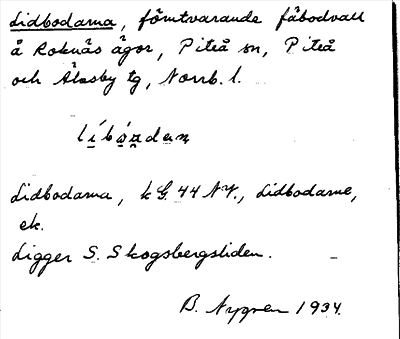 Lidbodarna, förutvarande fäbodvall
å Roknäs ägor, Piteå sn, Piteå
och Älvsby tg, Norrb. l.
Lidbodarna, k G. 44 NV., Lidbodarne,
ek.
Ligger S. Skogsbergsliden.
B. Nygren 1934.